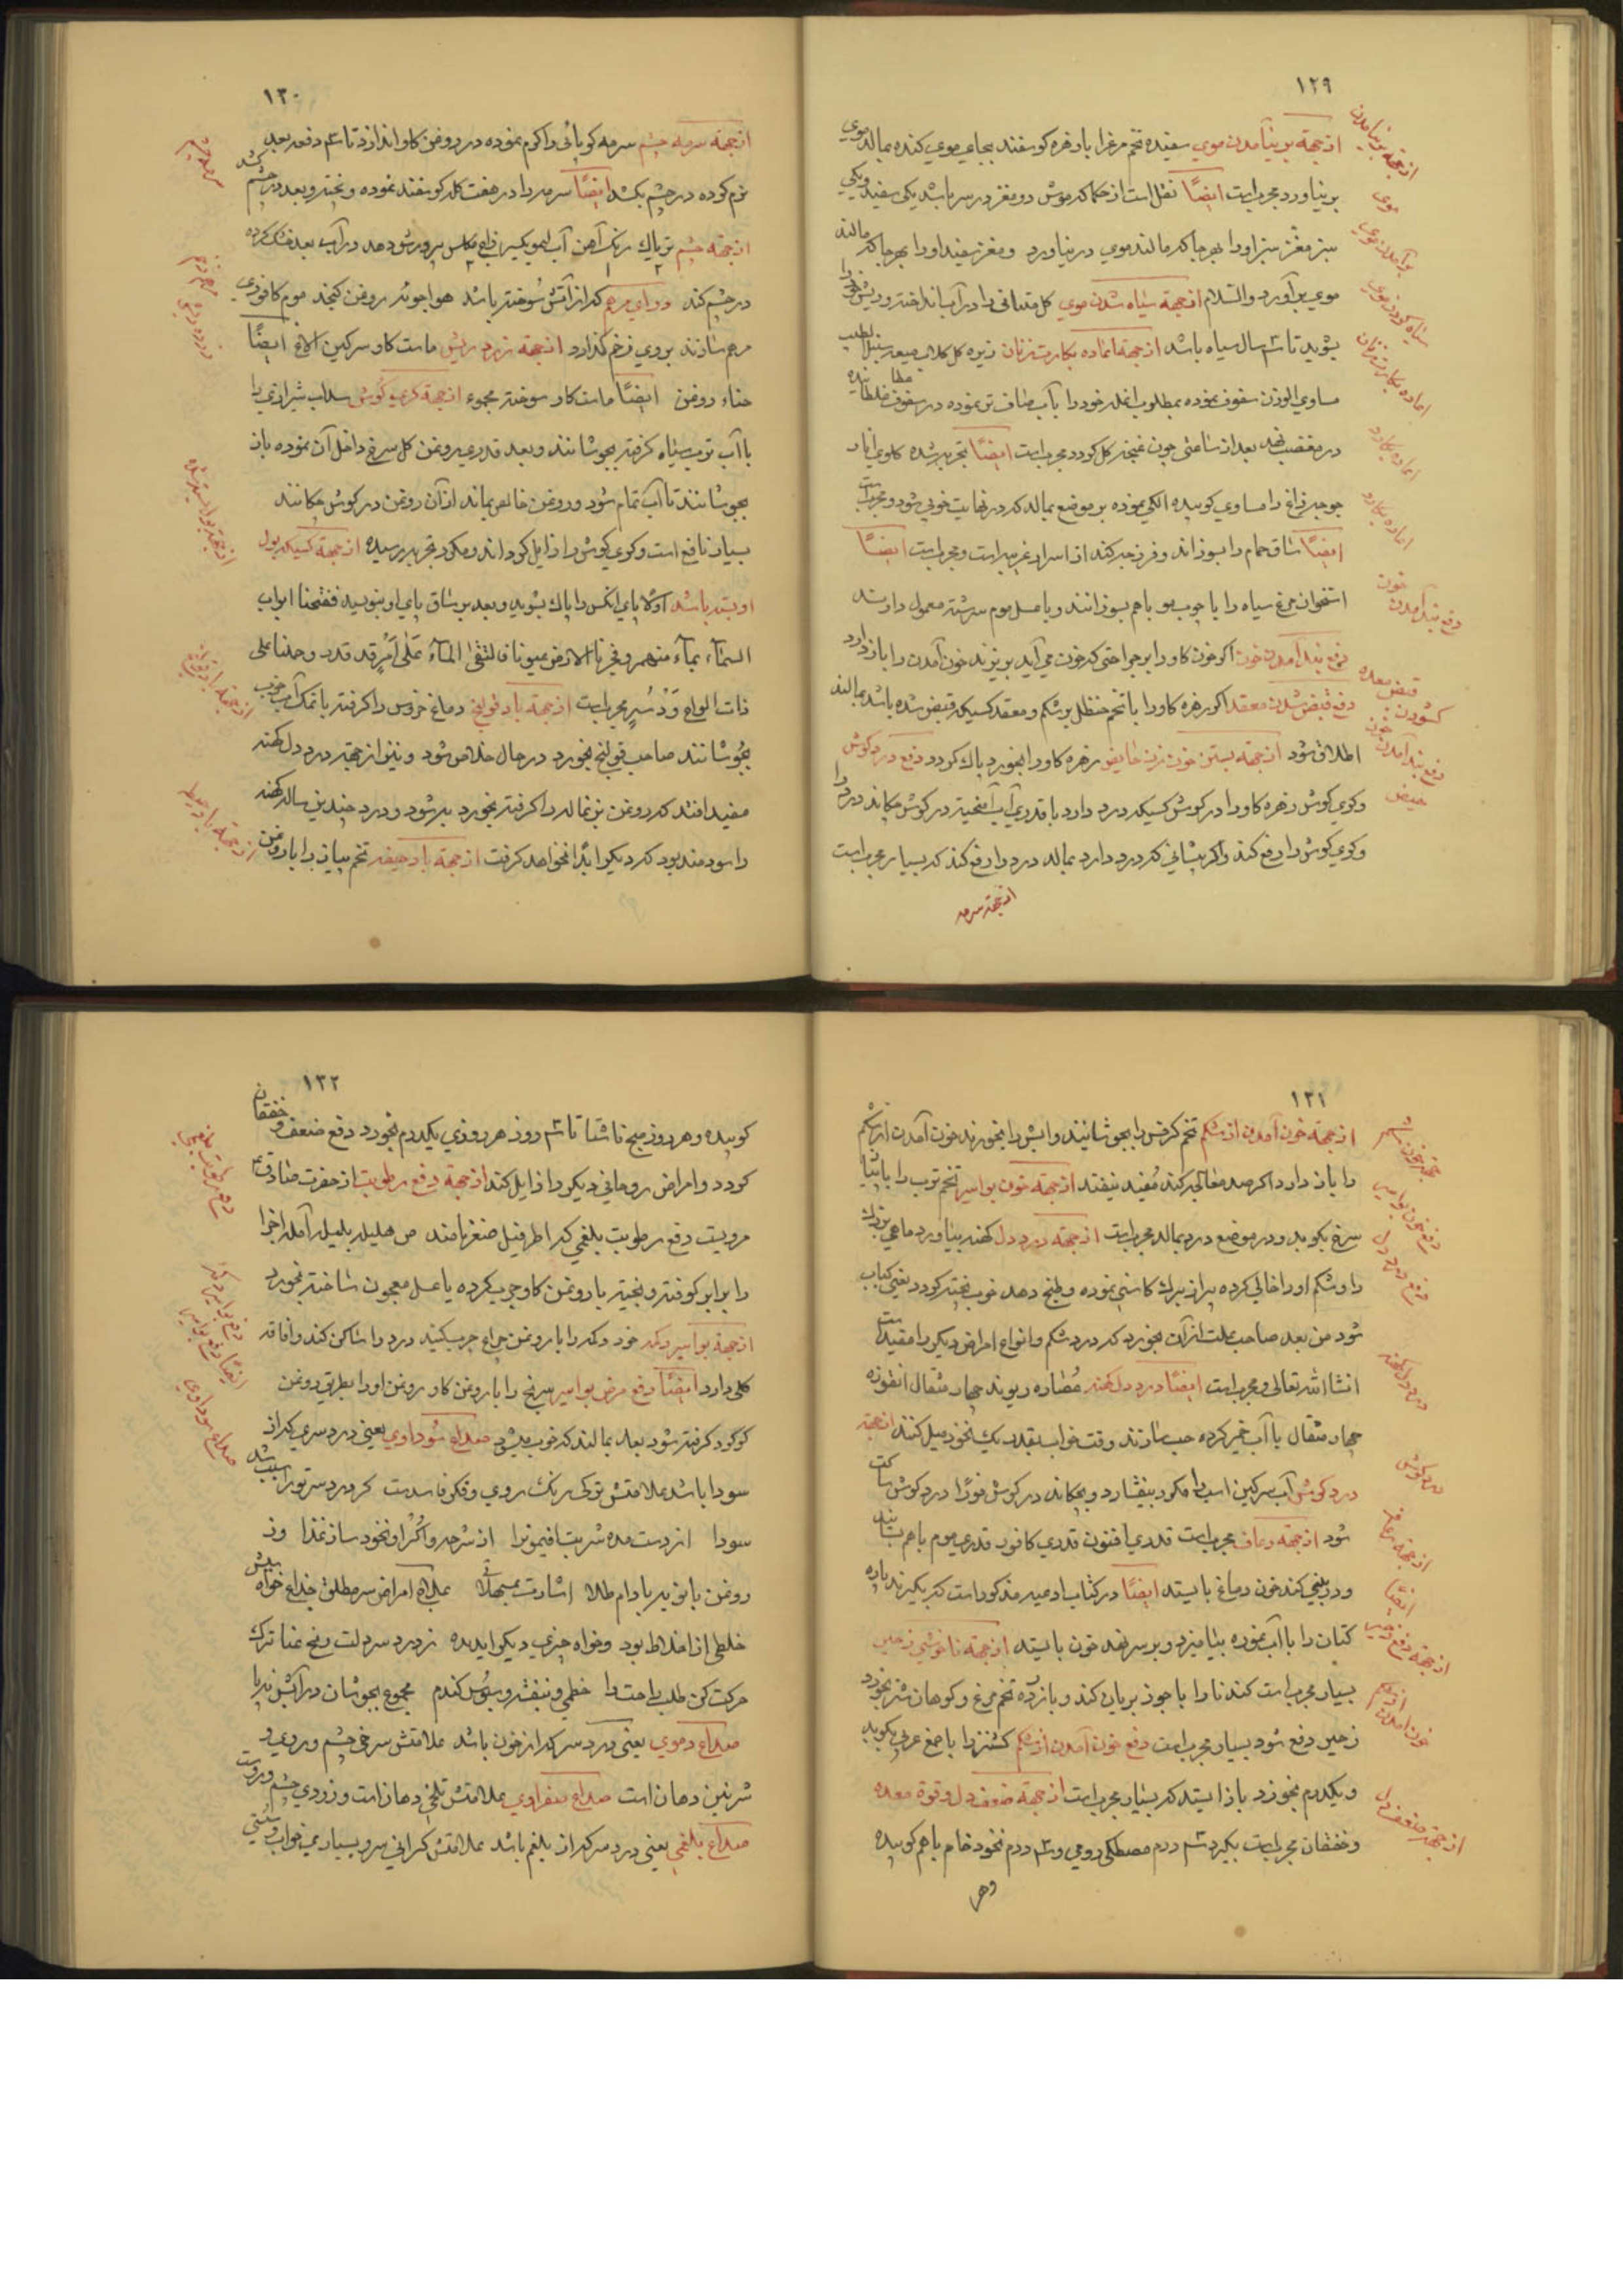 ۱۲۹
ازجهة برنیامدن موی سفیده تخم مرغ را با زهره کوسفند بجای موی کنده بمالد موی
برنیاورد مجربست ایضًا نقل است از حکما که موش دو مغز در سر باشد یکی سفید و یکی
سبز مغز سبز او را بهر جا که مالند موی درنیاورد و مغز سفید او را بهر جا که مالند
موی برآورد والسّلام ازجهة سیاه شدن موی کل را در آب انداخته و ریش خود را
بشوید تا سال سیاه باشد ازجهة اعاده بکارت زنان زیره کل کلاب سنبل الطیب
مساوی الوزن سفوف نموده مطلوب خود را بآب صاف تر نموده در سفوف
نهد بعد از ساعتی چون غنچه کل کردد مجربست ایضًا تجربه شده
را مساوی کوبیده الکی نموده بر موضع بمالد که در نهایت خوبی شود و مجربست
ایضًا ساق حمام را بسوزاند و فرزجه کند از اسرار غریبه است و مجربست ایضًا
استخوان مرغ سیاه را با چوب مو باهم بسوزانند و با عسل موم سرشته معمول دارند
دفع بند آمدن خون اکر خون کاو را بر جراحتی که خون می آید بریزند خون آمدن را باز دارد
دفع قبض شدن معقد اکر زهره کاو را با تخم حنظل بر شکم و معقد کسیکه قبض شده باشد بمالند
اطلاق شود ازجهة بستن خون زن حایض زهره کاو را بخورد پاک کردد دفع درد کوش
و کری کوش زهره کاو را در کوش کسیکه درد دارد با قدری آب آمیخته در کوش چکاند درد را
و کری کوش را دفع کند و اکر پیشانی که درد دارد بمالد درد را دفع کند که بسیار مجربست
ازجهة سرمه
ازجهة برنیامدن
موی
برآمدن موی
سیاه کردن موی
اعاده بکارت زنان
اعاده بکارت
اعاده بکارت
دفع بند آمدن خون
قبض معده
کشودن خون
دفع بند آمدن خون
حیض
۱۳۰
ازجهة سرمه چشم سرمه را کرم نموده در روغن کاو اندازد تا دفعه بعد
نرم کرده در چشم بکشد ایضًا سرمه را در هفت کله کوسفند نموده و پخته و بعد در چشم کشد
ازجهة چشم تریاک زنک آهن آب لیمو بکیر پرورش دهد در آب بعد خشک کرده
در چشم کند دوای مرهم که از آتش سوخته باشد روغن کنجد موم کافوری
مرهم سازند بروی زخم کذارد ازجهة زرد ریش ماست کاو سرکین الاغ ایضًا
حناء روغن ایضًا ماست کاو سوخته مجموع ازجهة کری کوش سداب شیرازی را
با آب ترب سیاه کرفته بجوشانند و بعد قدری روغن کل سرخ داخل آن نموده باز
بجوشانند تا آب تمام شود و روغن خالص بماند از آن روغن در کوش چکانند
بسیار نافع است و کری کوش را زایل کرداند و مکرر بتجربه رسیده ازجهة کسیکه بول
او بسته باشد اوّلا پای آنکس را پاک بشوید و بعد بر ساق پای او بنویسد ففتحنا ابواب
السمآء بمآء منهمر و فجرنا الارض عیونا فالتقی المآء عَلٰی اَمْرٍ قد قدر و حملناه علی
ذات الواح وَدُسُرٍ مجربست ازجهة باد قولنج دماغ خروس را کرفته با نمک آب خوب
بجوشانند صاحب قولنج بخورد در حال خلاص شود و نیز از جهة درد دل کهنه
مفید افتد که روغن بز نماله را کرفته بخورد به شود و درد چندین ساله کهنه
را سودمند بود که دیکر ابدًا نخواهد کرفت ازجهة باد تخم پیاز را با روغن
سرمه چشم
ازجهة بول بسته شده
ازجهة باد قولنج
۱۳۱
ازجهة خون آمدن از شکم تخم کرفس را بجوشانیند و آبش را بخورند خون آمدن از شکم
را باز دارد اکر صد معالجه کند مُفید نیفتد ازجهة خون بواسیر تخم ترب را با پیاز
سرخ بکوبد و در موضع درد بمالد مجربست ازجهة درد دل کهنه بیاورد ماهی بزرک
را و شکم او را خالی کرده پر از برک کاسنی نموده و طبخ دهد خوب پخته کردد یعنی کباب
شود من بعد صاحب علت از آن بخورد که درد شکم و انواع امراض دیکر را مفید است
انشاالله تعالی و مجربست ایضًا درد دل کهنه عُصاره ریوند چهار مثقال انقوزه
چهار مثقال با آب خمیر کرده حب سازند وقت خواب بقدر یک نخود میل کنند ازجهة
درد کوش آب سرکین اسب را مکرر بیفشارد و بچکاند در کوش فورًا درد کوش ساکت
شود ازجهة رعاف مجربست قدری افیون قدری کافور قدری موم باهم
و در بینی کند خون دماغ بایستد ایضًا در کتاب ادمیه مذکور است که بکیرند پاره
کتان را با آب نموده بیامیزد و بر سر نهد خون بایستد ازجهة ناخوشی زحیر
بسیار مجربست کندنا را با جوز بریان کند و با زرده تخم مرغ و کوهان شتر بخورد
زحیر دفع شود بسیار مجربست دفع خون آمدن از شکم کشنز را با صمغ عربی بکوبد
و یکدرم بخورد باز ایستد که بسیار مجربست ازجهة ضعف دل و قوة معده
و خفقان مجربست بکیرد درم مصطکی رومی و درم نخود خام باهم کوبیده
وهر
دفع خون بواسیر
دفع درد دل
درد دل کهنه
درد کوش
ازجهة رعاف
ایضًا
ازجهة دفع زحیر
خون آمدن از شکم
ازجهة ضعف دل
۱۳۲
کوبیده و هر روز صبح ناشتا تا روز هر روزی یکدرم بخورد دفع ضعف و خفقان
کردد و امراض روحانی دیکر را زایل کند ازجهة دفع رطوبت از حضرت صادق ع
مرویست دفع رطوبت بلغمی که اطریفیل صغیر نامند ص هلیله بلیله آمله اجزا
را برابر کوفته و بیخته با روغن کاو چرب کرده با عسل معجون ساخته بخورد
ازجهة بواسیر دکر خود دکر را با روغن چراغ چرب کنید درد را ساکن کند و افاقه
کلی دارد ایضًا دفع مرض بواسیر سرنج را با روغن کاو روغن او را بطریق روغن
کوکرد کرفته شود بعد بمالند که خوب میشود صداع سُوداوی یعنی درد سری که از
سودا باشد علامتش ترکی رنک روی و فکر فاسدست کر درد سر تو را سبب شد
سودا از دست مده شربت افیمونرا از شرحه و اُکرا و نخود ساز غذا وز
روغن بابونه بادام طلا اشارت بمسهلات علاج امراض سر مطلق خداع خواه بیش
خلطی از اخلاط بود و خواه چیزی دیکر ای دیده ز درد سر دلت رنج عنا ترک
حرکت کن طلب راحت را خطمی و بنفشه و سُبوس کندم مجموع بجوشان در آتش نه پا را
صداع دموی یعنی درد سر که از خون باشد علامتش سرخی چشم و روی و
شرینی دهان است صداع صفراوی علامتش تلخی دهان است و زردی چشم و روست
صداع بلغمی یعنی درد سر که از بلغم باشد علامتش کرانی سر و بسیاری خواب و سستی
دفع رطوبت بلغمی
دفع بواسیر دکر
ایضًا دفع بواسیر
صداع سوداوی